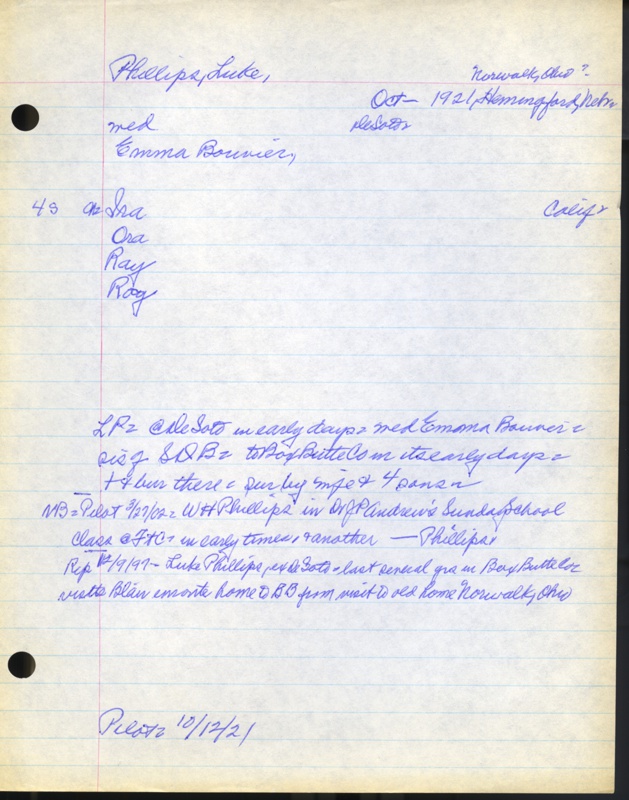 Phillips, Luke,
Norwalk, Ohio ?
Oct - 1921, Hemingford, Nebr
DeSoto
med
Emma Bouvier,
4 s Ira
Calif
Ora
Ray
Roy
LP = @ DeSoto in early days = med Emma Bouvier =
sis of S D B = to Box Butte Co in its early days =
+ & bur there = sur by wife & 4 sons =
NB = Pilot 3/27/02 = W H Phillips in Dr J P Andrew's Sunday School
Class @ Ft C in early times, & another — Phillips
Rep 12/9/97 - Luke Phillips, ex DeSoto = last several yrs in Box Butte Co
visits Blair enroute home to BB from visit to old home Norwalk, Ohio
Pilot = 10/12/21